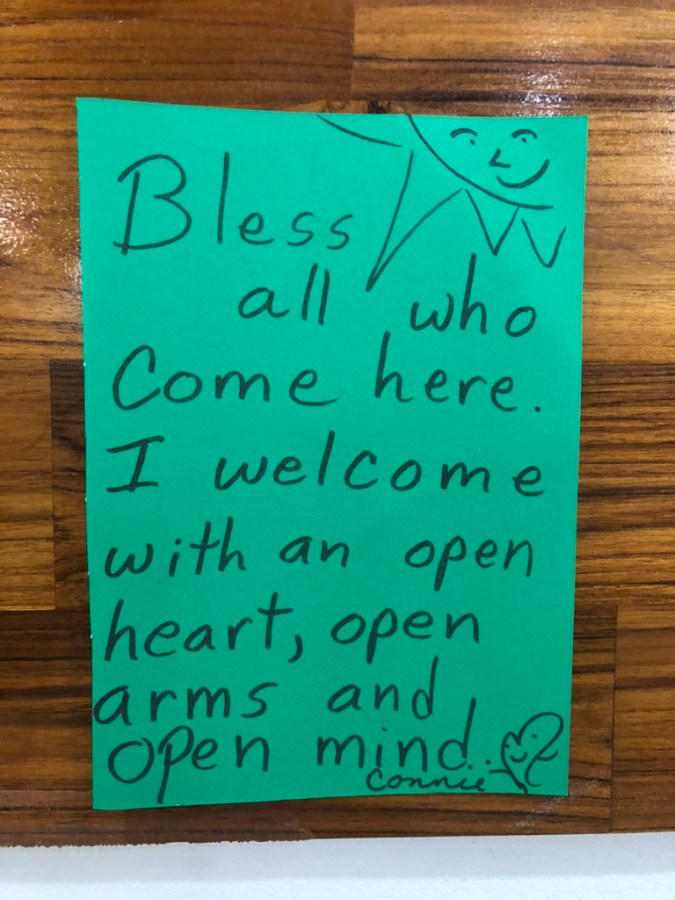 Bless
all who
Come here.
I welcome
with an open
heart, open
arms and
open mind..
Connie